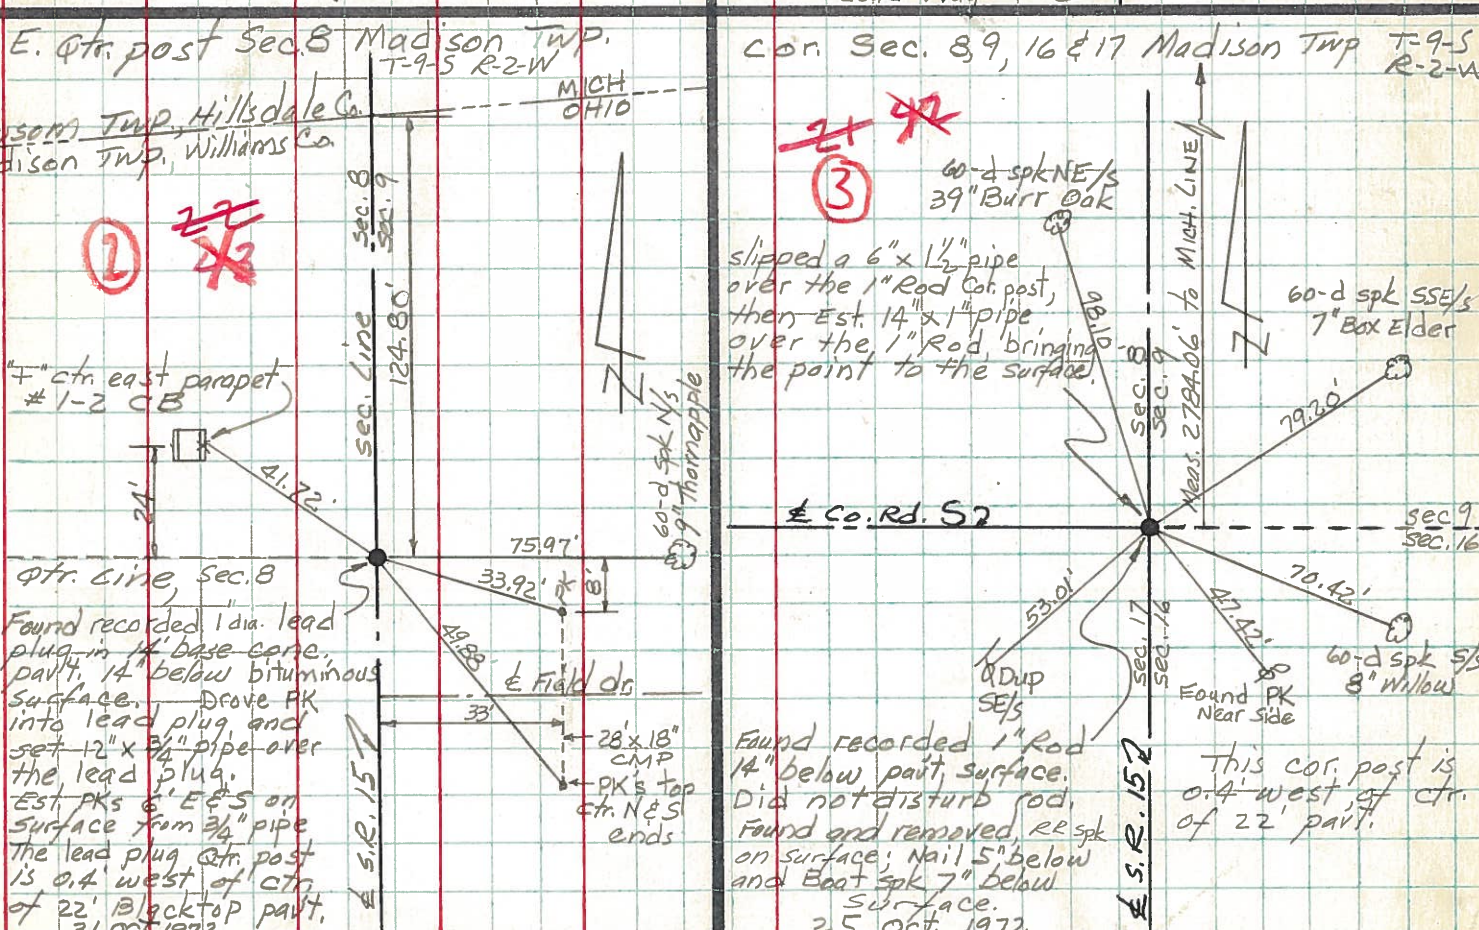 E. Qtr. post Sec. 8 Madison Twp.
T-9-S R-2-W
MICH
OHIO
Twp., Hillsdale Co.
dison Twp., Williams Co.
22
2
Sec. 8
Sec. 9
124.80'
Sec. Line
"+" ctr. east parapet
# 1-2 CB
41.72'
24'
60-d spk N/s
9" Thornapple
75.97'
33.92'
PK
8'
49.88'
Qtr. Line, Sec. 8
Found recorded 1" dia. lead
plug in 14' base conc.
pav't. 14" below bituminous
surface. Drove PK
into lead plug and
set 12" x 3/4" pipe over
the lead plug.
Est. PKs 6' E & S on
surface from 3/4" pipe
The lead plug Qtr. post
is 0.4' west of ctr.
of 22' Blacktop pav't.
31 Oct 1972
℄ Field dr.
33'
28' x 18"
CMP
PK's top
ctr. N & S
ends
℄ S.R. 15
Cor. Sec. 8, 9, 16 & 17 Madison Twp T-9-S
R-2-W
21 42
3
60-d spk NE/s
39" Burr Oak
slipped a 6" x 1 1/2" pipe
over the 1" Rod Cor. post,
then Est. 14" x 1" pipe
over the 1" Rod, bringing
the point to the surface.
98.10'
Sec. 8
Sec. 9
Meas. 2784.06' to MICH. LINE
60-d spk SSE/s
7" Box Elder
79.20'
℄ Co. Rd. S
sec 9
sec. 16
53.01'
Dup
SE/s
sec. 17
sec. 16
47.42'
Found PK
Near Side
70.42'
60-d spk S/s
8" Willow
Found recorded 1" Rod
14" below pav't. surface.
Did not disturb rod.
Found and removed, RR spk
on surface; Nail 5" below
and Boat spk 7" below
Surface.
25 Oct. 1972
℄ S.R. 15
This cor. post is
0.4' west of ctr.
of 22' pav't.